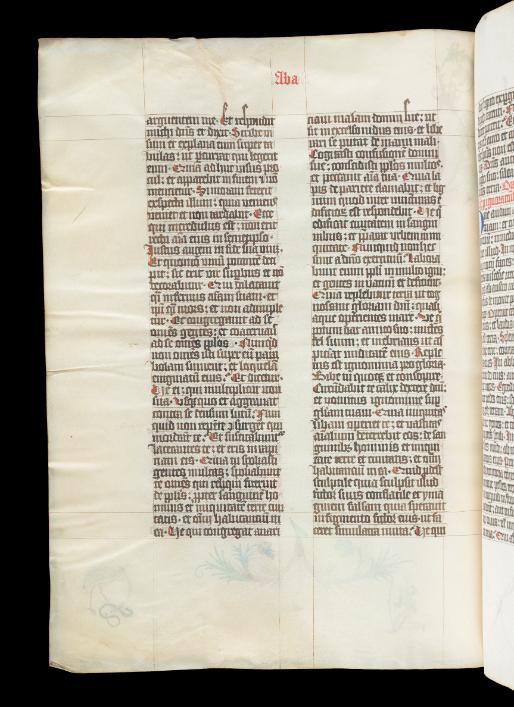 Aba
arguentem me. Et respondit
michi dns et dixit. Scribe vi
sum et explana eum super ta
bulas: ut percurrat qui legerit
eum. Quia adhuc visus pro
cul: et apparebit in finem et non
mentietur. Si moram fecerit
expecta illum: quia veniens
veniet et non tardabit. Ecce
qui incredulus est: non erit
recta aia eius in semetipso.
Iustus autem in fide sua vivet.
Et quomodo vinum potantem deci
pit: sic erit vir superbus et no
decorabitur. Quia dilatavit
quasi infernus aiam suam: et
ipse quasi mors: et non adimple
tur. Et congregavit ad se
omnes gentes: et coacervavit
ad se omnes pplos. Numquid
non omnes isti super eum para
bolam sument: et loquelam
enigmatum eius. Et dicetur.
Ve ei: qui multiplicat non
sua. Usquequo et aggravat
contra se densum lutum. Num
quid non repente consurgent qui
mordeant te. Et suscitabuntur
lacerantes te: et eris in rapi
nam eis. Quia tu spoliasti
gentes multas: spoliabunt
te omnes qui reliqui fuerint
de pplis: propter sanguinem ho
minis et iniquitatem terre civi
tatis. et omnium habitantium in
ea. Ve qui congregat avari
ciam malam domui sue: ut
sit in excelso nidus eius. et libe
rari se putat de manu mali.
Cogitasti confusionem domui
tue: concidisti pplos multos.
et peccavit aia tua. Quia la
pis de pariete clamabit: et lig
num quod inter iuncturas e
dificiorum est respondebit. Ve qui
edificat civitatem in sangui
nibus: et preparat urbem in in
quitate. Numquid non hec
sunt a dno exercituum. Labora
bunt enim ppli in multo igni:
et gentes in vacuum et deficient.
Quia replebitur terra ut cog
noscant gloriam dni: quasi
aque operientes mare. Ve qui
potum dat amico suo: mittens
fel suum: et inebrians ut as
piciat nuditatem eius. Reple
tus est ignominia pro gloria.
Bibe tu quoque et consopire.
Circumdabit te calix dextere dni:
et vomitus ignominie super
gloriam tuam. Quia iniquitas
libani operiet te: et vastitas
animalium deterrebit eos: de san
guinibus hominum et iniqui
tate terre et civitatis: et omnium
habitantium in ea. Quid prodest
sculptile quia sculpsit illud
fictor suus conflatile et yma
ginem falsam quia speravit
in figmento fictor eius. ut fa
ceret simulacra muta. Ve qui